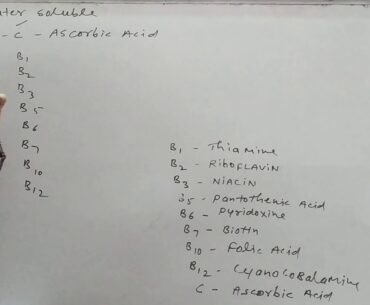 ater soluble
- C - Ascorbic Acid
B1
B2
B3
B5
B6
B7
B10
B12
B1 - Thiamine
B2 - Riboflavin
B3 - Niacin
B5 - Pantothenic Acid
B6 - Pyridoxine
B7 - Biotin
B10 - Folic Acid
B12 - Cyanocobalamine
C - Ascorbic Acid